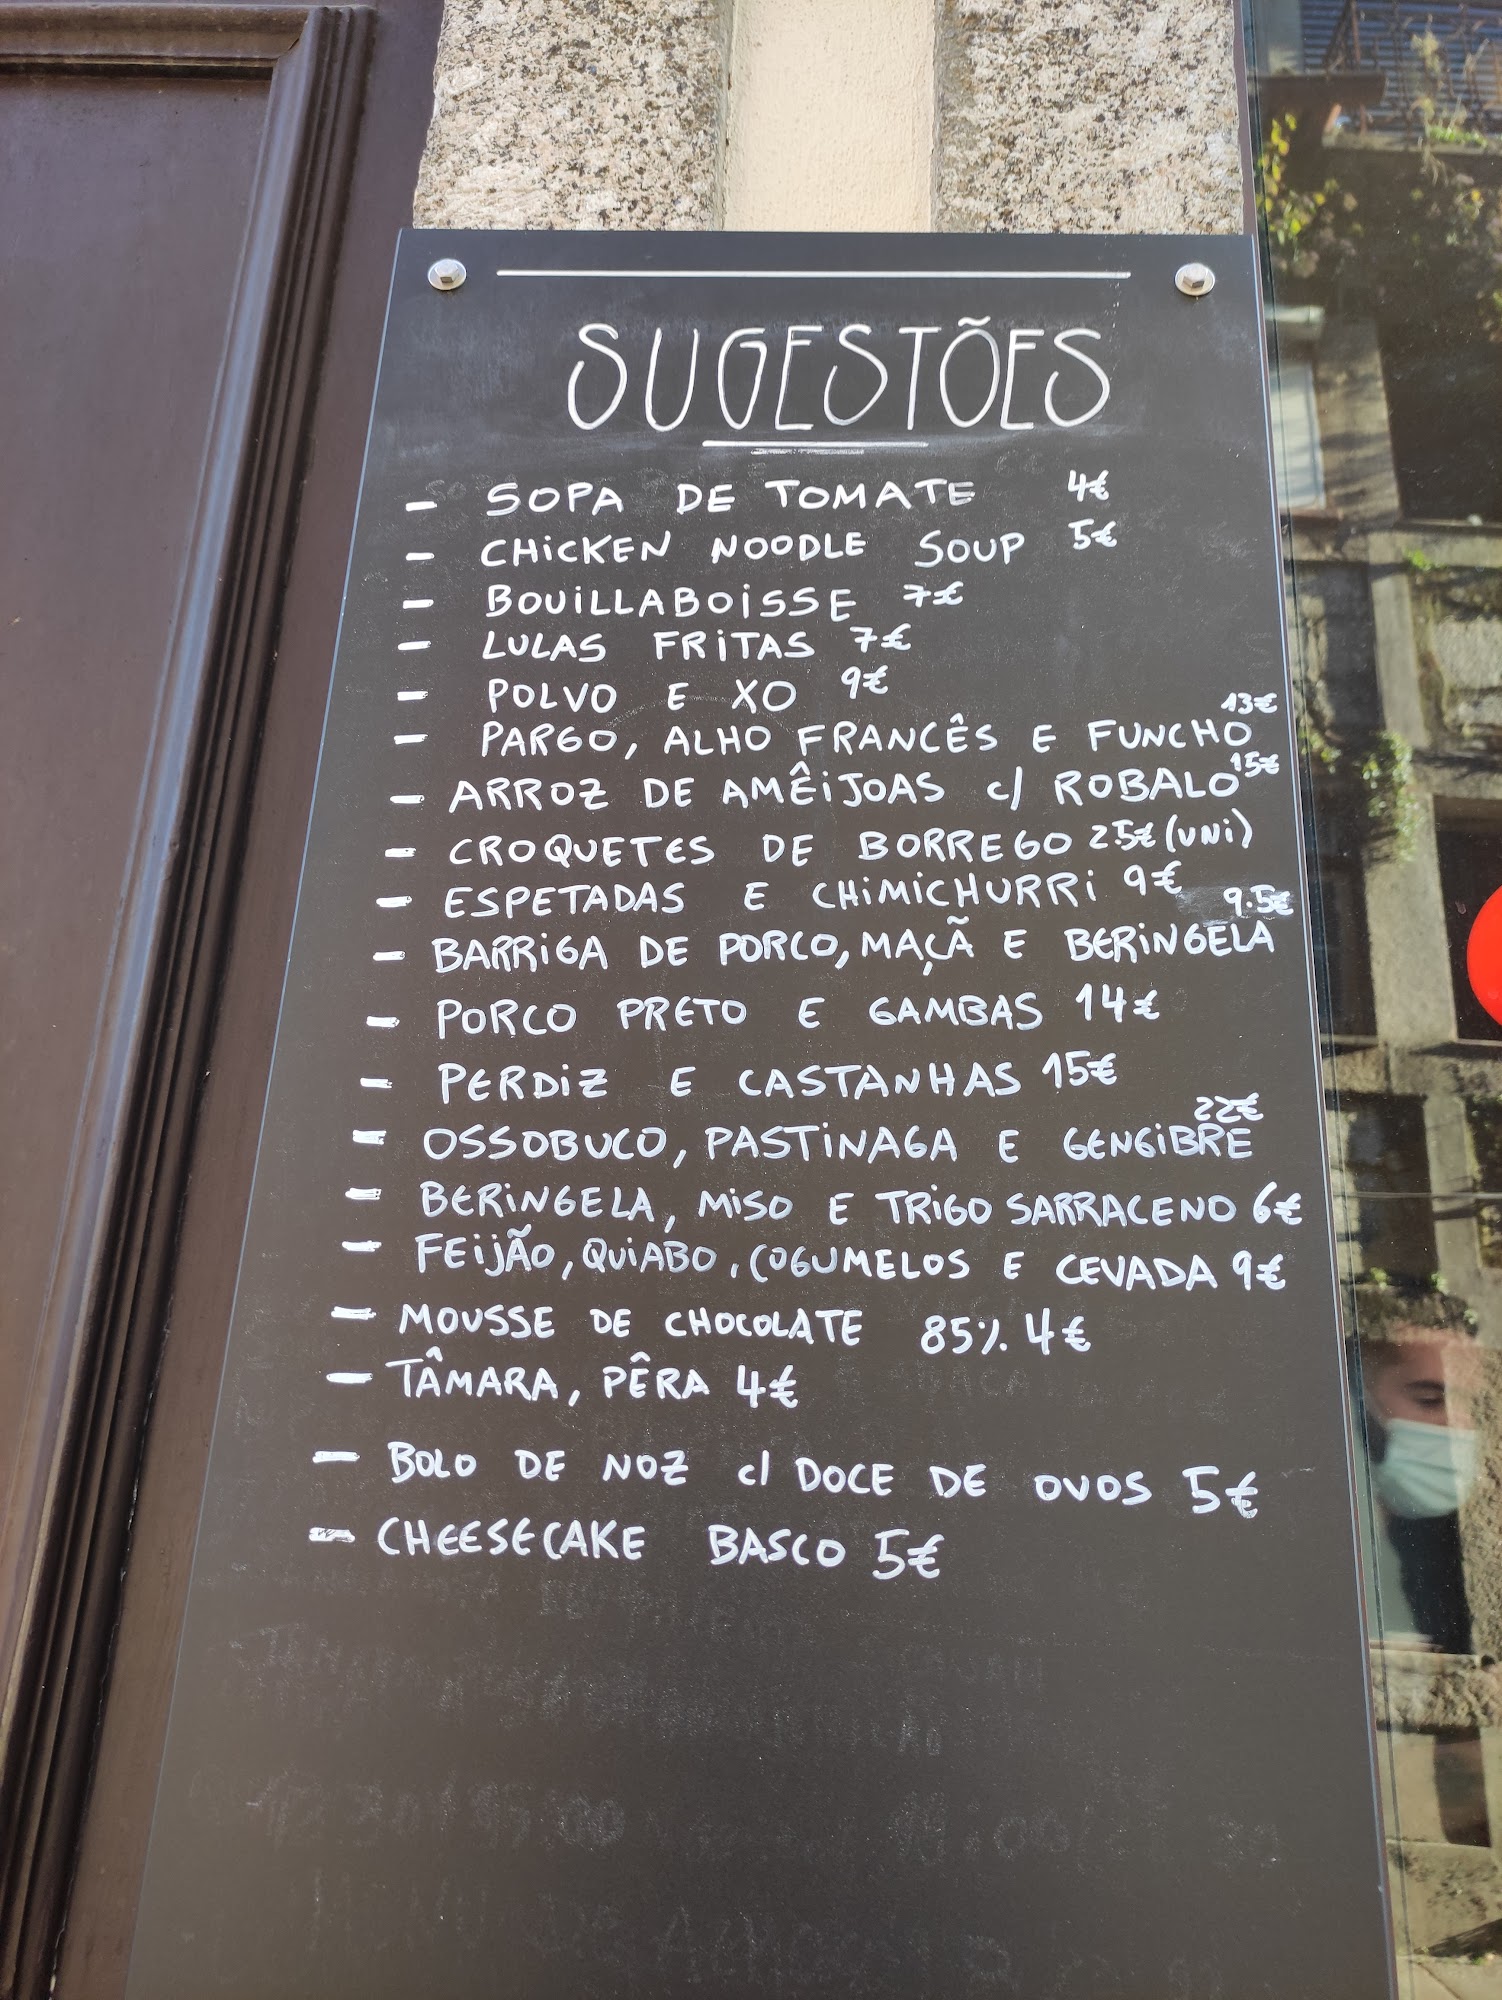 SUGESTÕES
- SOPA DE TOMATE 4€
- CHICKEN NOODLE SOUP 5€
- BOUILLABOISSE 7€
- LULAS FRITAS 7€
- POLVO E XO 9€
- PARGO, ALHO FRANCÊS E FUNCHO 13€
- ARROZ DE AMÊIJOAS C/ ROBALO 15€
- CROQUETES DE BORREGO 2.5€ (UNI)
- ESPETADAS E CHIMICHURRI 9€
- BARRIGA DE PORCO, MAÇÃ E BERINGELA 9.5€
- PORCO PRETO E GAMBAS 14€
- PERDIZ E CASTANHAS 15€
- OSSOBUCO, PASTINAGA E GENGIBRE 22€
- BERINGELA, MISO E TRIGO SARRACENO 6€
- FEIJÃO, QUIABO, COGUMELOS E CEVADA 9€
- MOUSSE DE CHOCOLATE 85% 4€
- TÂMARA, PÊRA 4€
- BOLO DE NOZ C/ DOCE DE OVOS 5€
- CHEESECAKE BASCO 5€